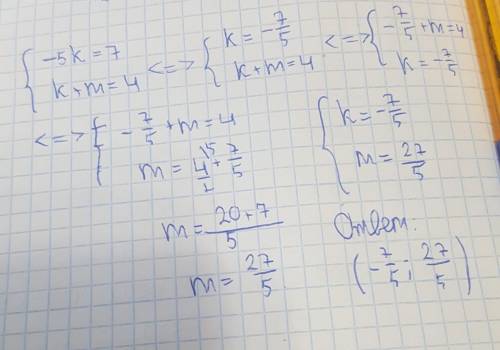 { -5k = 7
k + m = 4 <=> { k = -7/5
k + m = 4 <=> { -7/5 + m = 4
k = -7/5
<=> { -7/5 + m = 4
m = 4/1 + 7/5
m = 20+7/5
m = 27/5
{ k = -7/5
m = 27/5
Ответ:
(-7/5; 27/5)